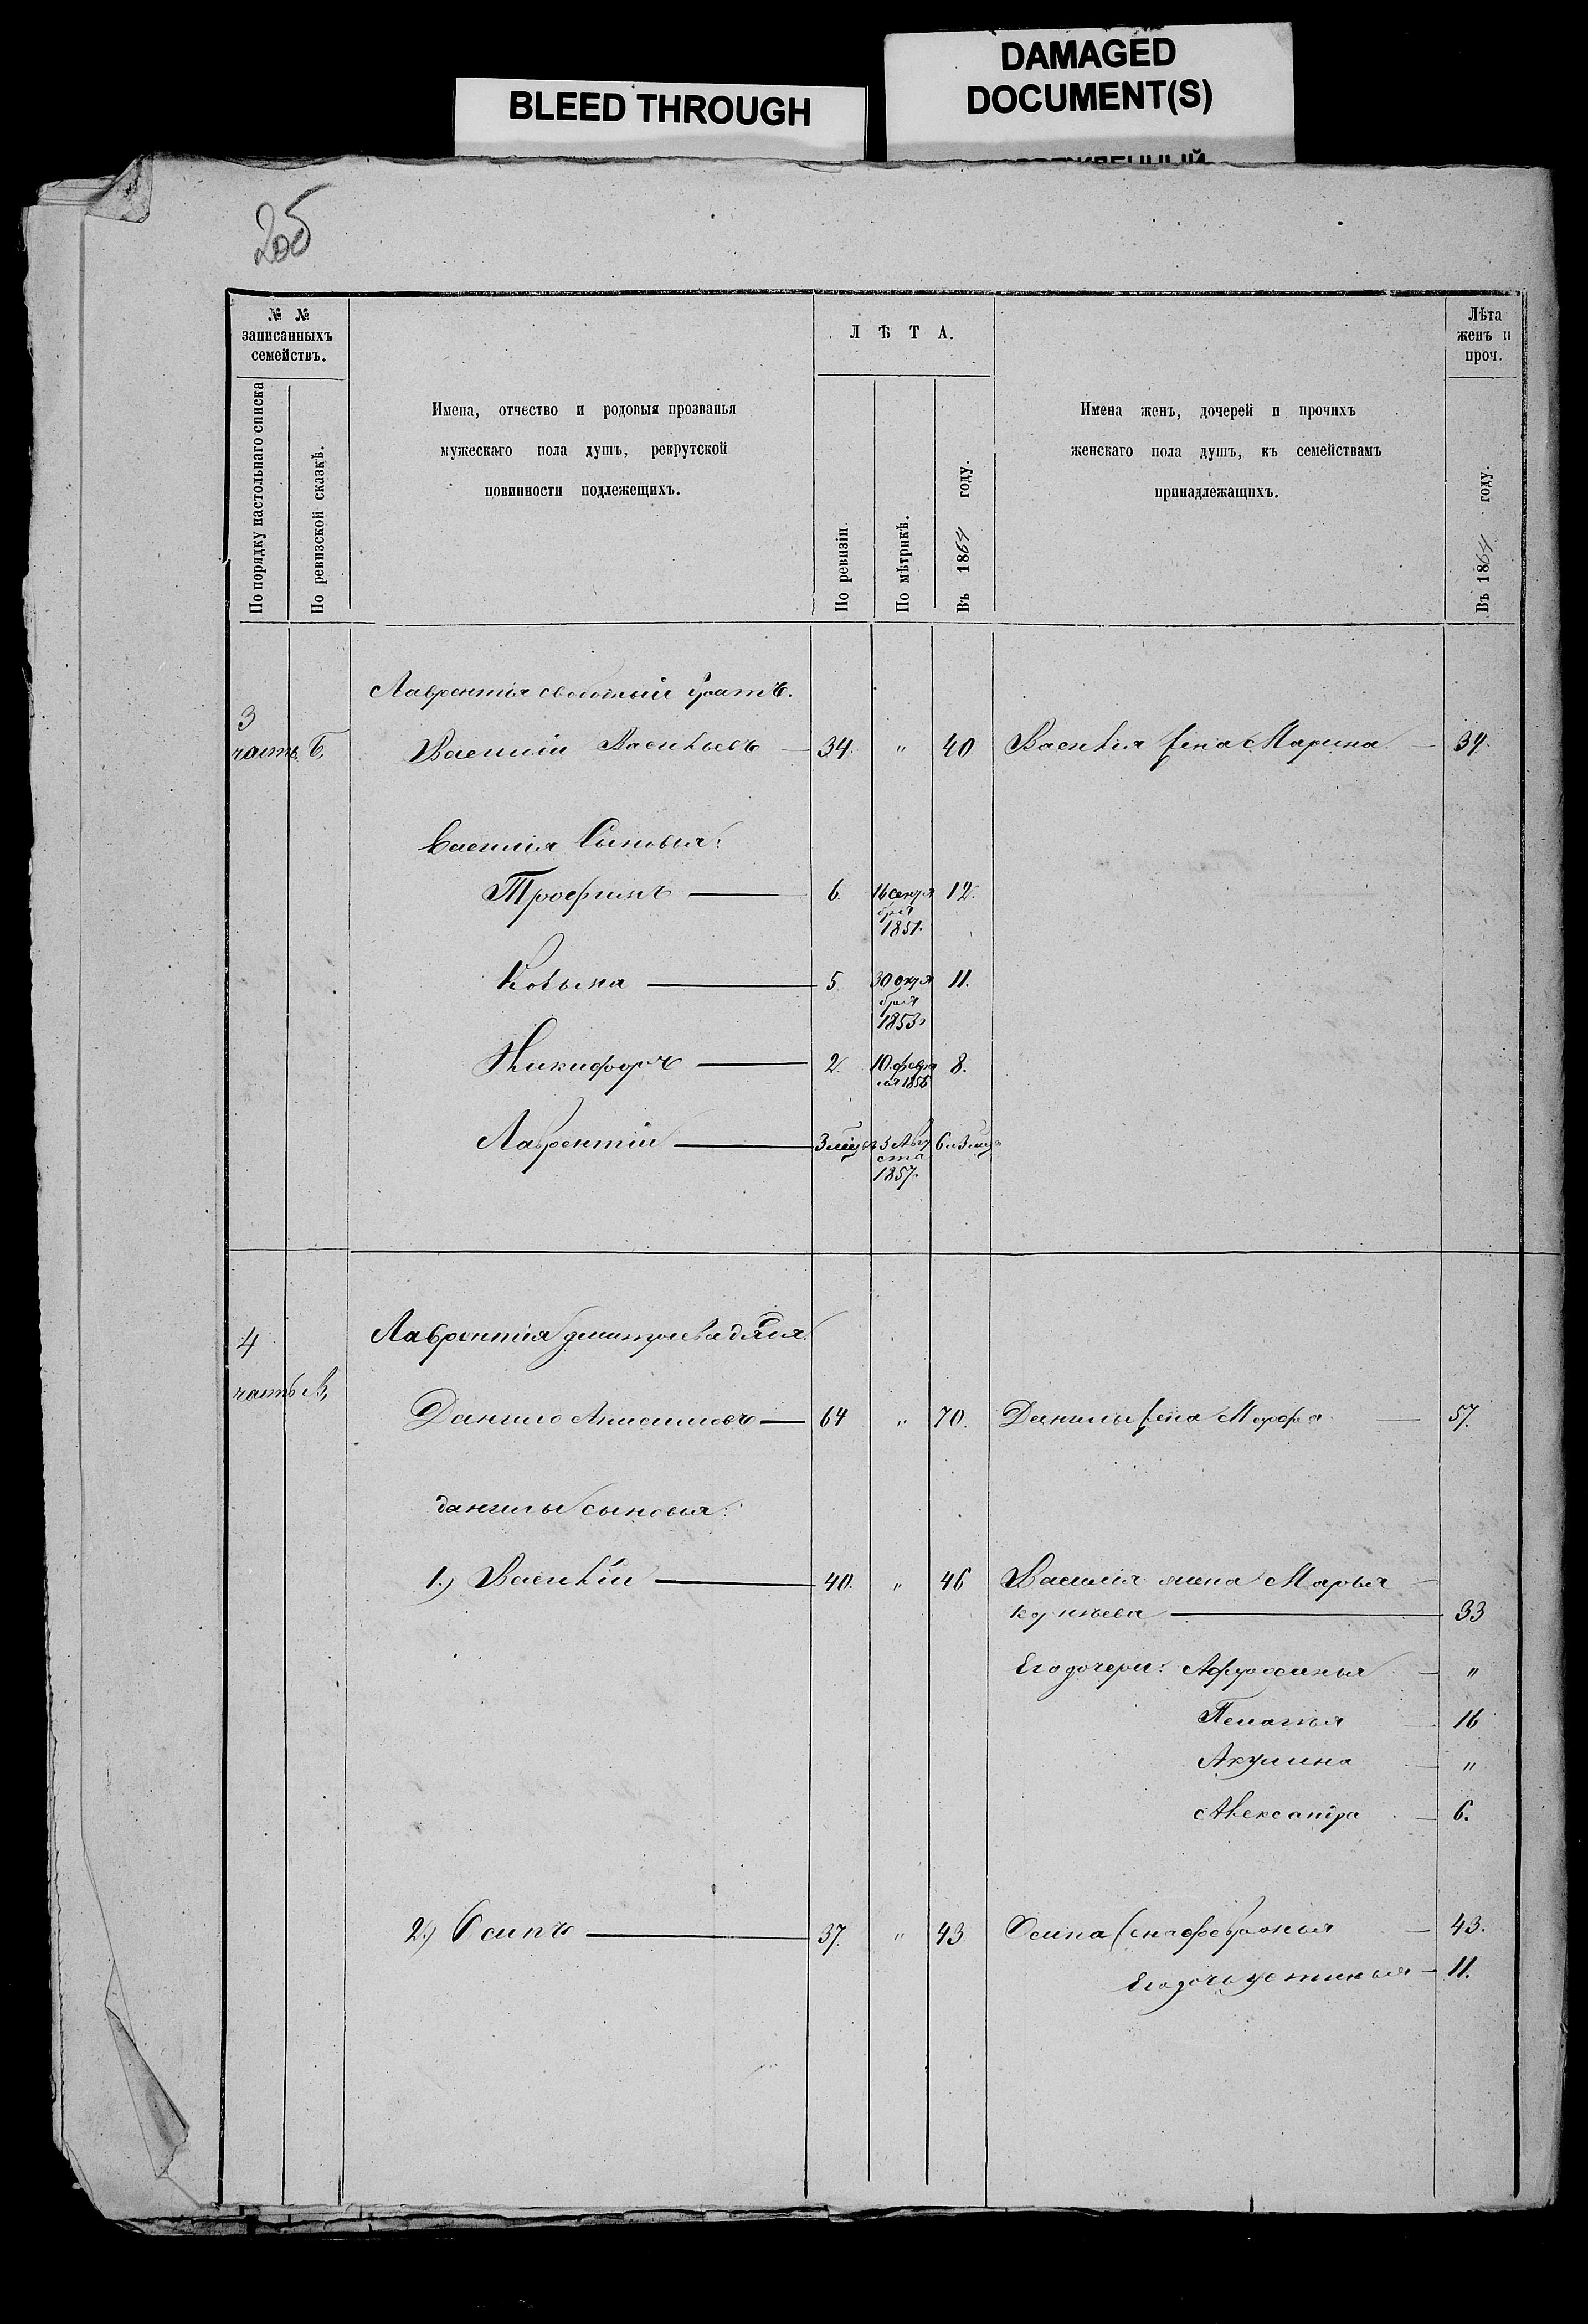 BLEED THROUGH
DAMAGED
DOCUMENT(S)
205
№ №
записанныхъ
семействъ.
По порядку настольнаго списка
По ревизской сказкѣ.
Имена, отчество и родовыя прозванья
мужескаго пола душъ, рекрутской
повинности подлежещихъ.
ЛѢТА.
По ревизіи
По мѣтрикѣ.
Въ 1864 году.
Имена женъ, дочерей и прочихъ
женскаго пола душъ, къ семействамъ
принадлежащихъ.
Лѣта
женъ и
проч.
Въ 1864 году.
Лаврентія братъ.
3
часть Б Василій Васильевъ — 34. " 40 Василія жена Марина — 34.
Василія Сыновья:
Трофимъ — 6. 16 сентя 12.
бря
1851.
Козьма — 5 30 октя 11.
бря
1853
Никифоръ — 2. 10 февра 8.
ля 1856
Лаврентій — 3 мѣц 25 Авгу 6 и 3 мц
ста
1857.
4 Лаврентія Дмитріева дядя
часть В,
Данило Анисимовъ — 64 " 70. Данилы жена Марфа — 57.
Данилы сыновья:
1.) Василій — 40. " 46 Василія жена Марья —
33
Его дочери: Афросинья — "
Пелагья — 16
Акулина — "
Александра — 6.
2.) Осипъ — 37. " 43 Осипа жена февронья — 43.
Его дочь устинья — 11.